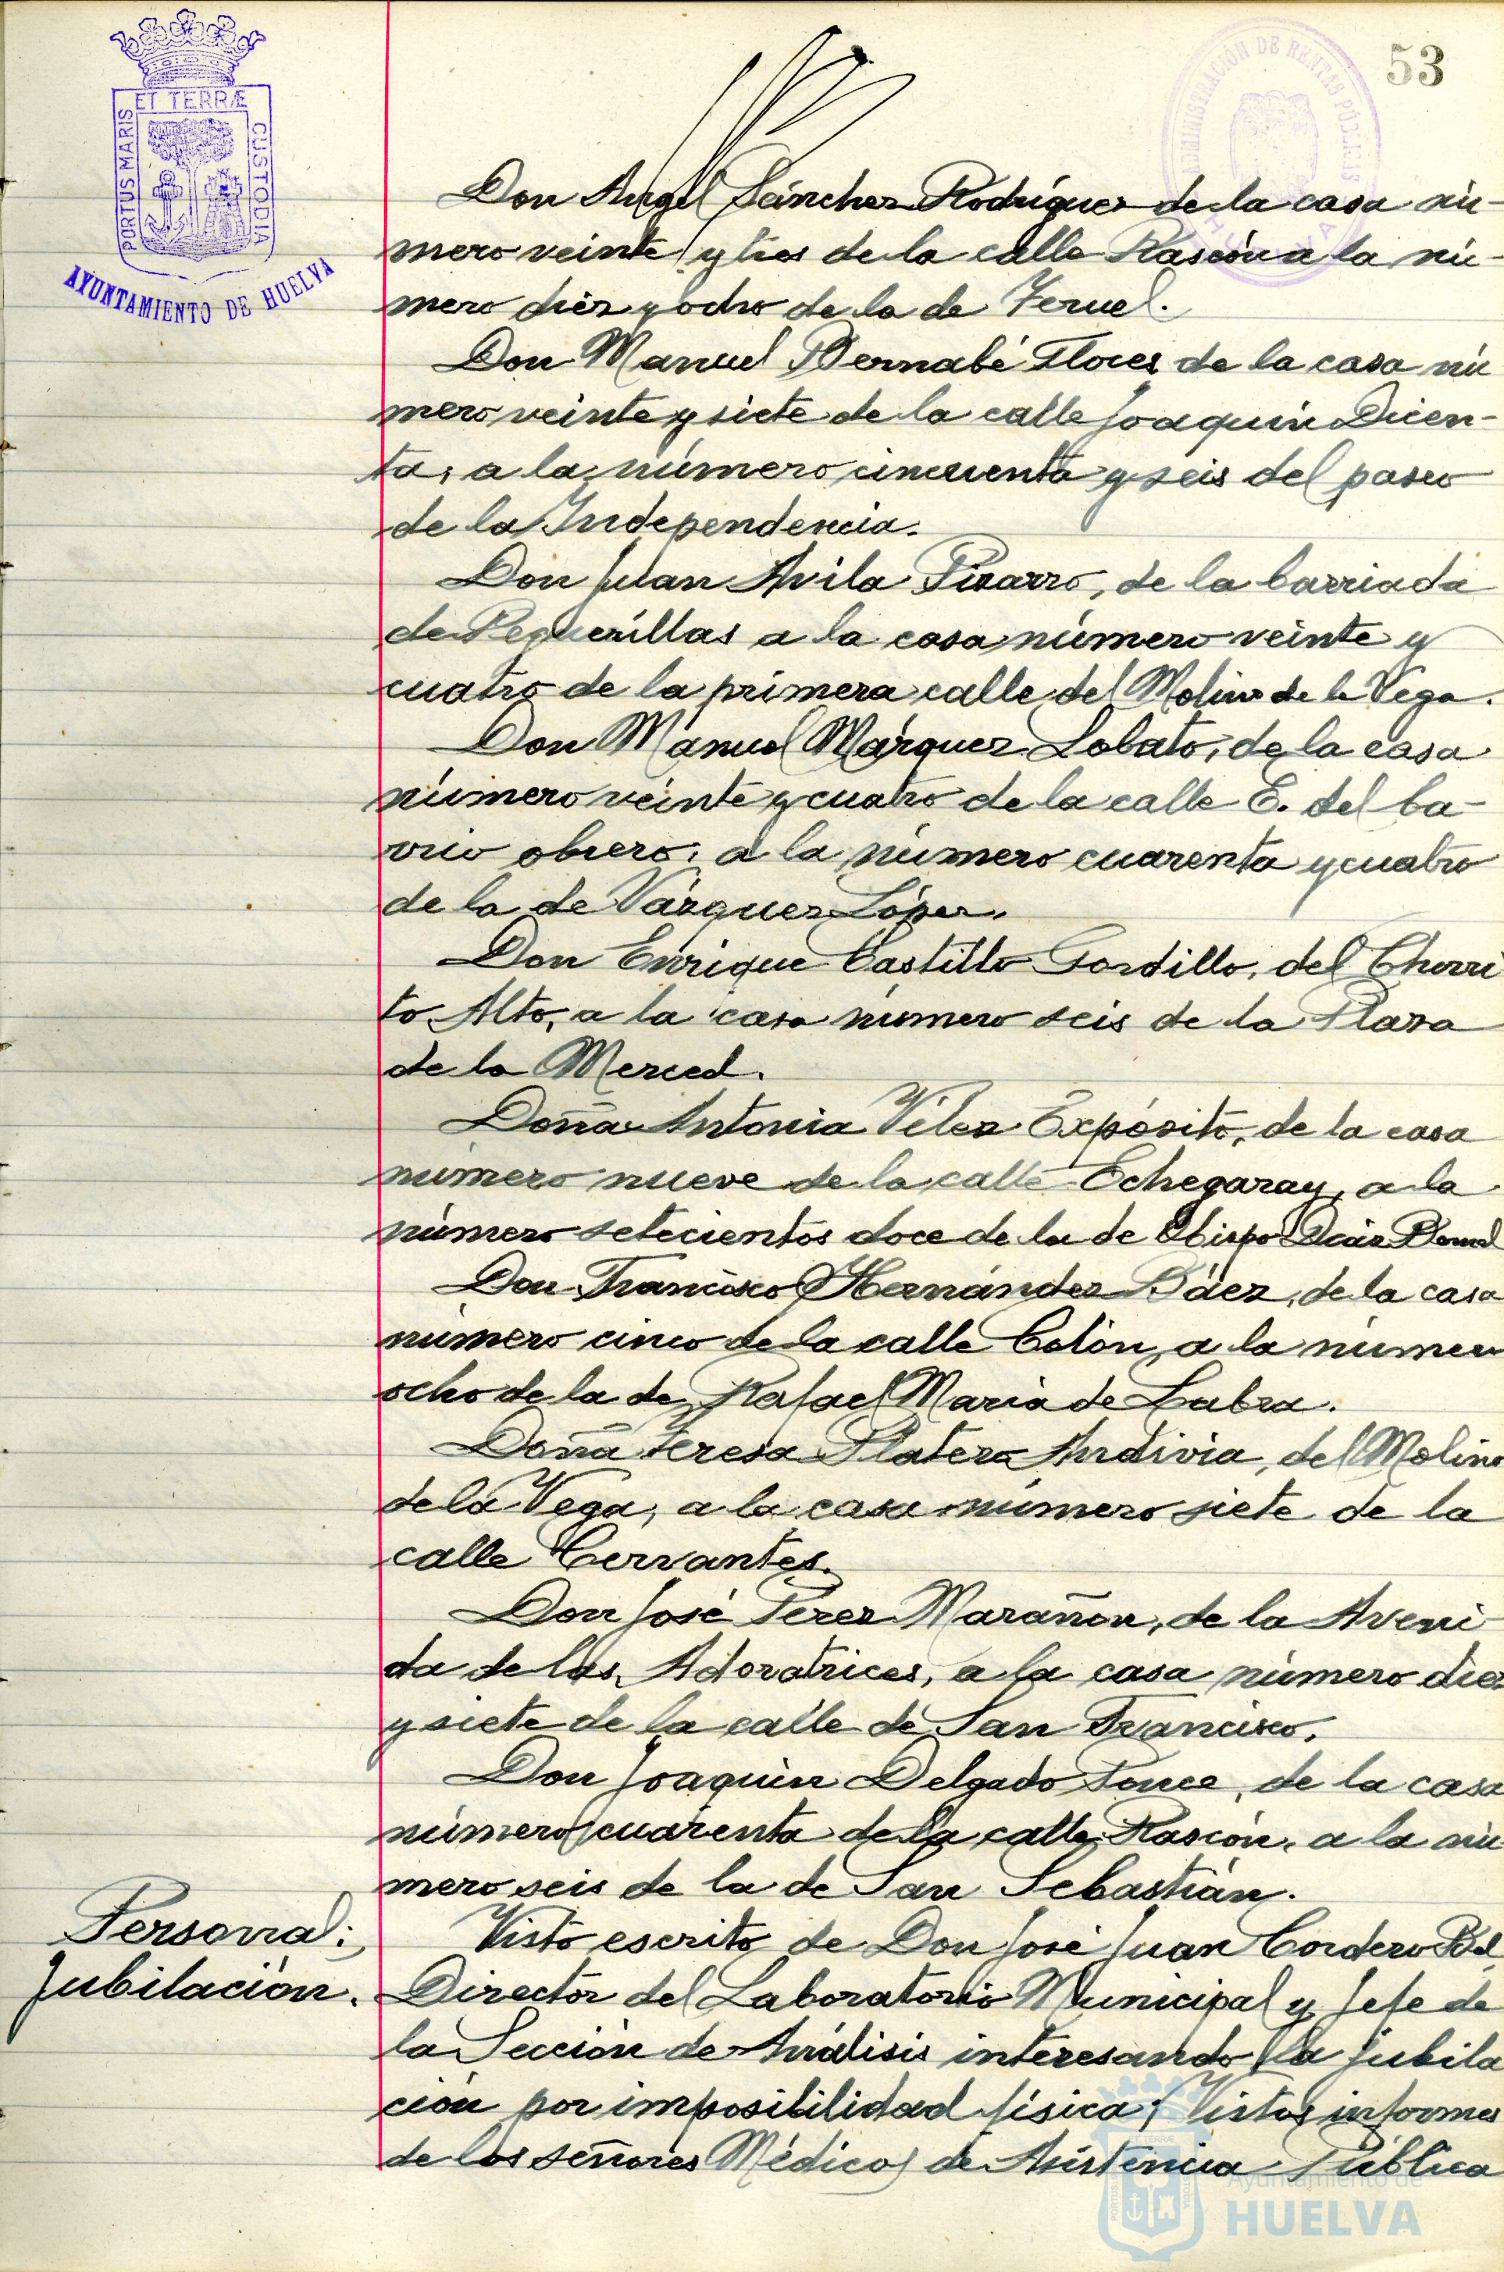 ET TERRÆ
PORTUS MARIS
CUSTODIA
AYUNTAMIENTO DE HUELVA
ADMINISTRACIÓN DE RENTAS PÚBLICAS
53
Don Angel Sánchez Rodríguez de la casa nú-
mero veinte y tres de la calle Rascón a la nú-
mero diez y ocho de la de Teruel.
Don Manuel Bernabé Flores de la casa nú
mero veinte y siete de la calle Joaquín Dicen-
ta, a la número cincuenta y seis del paseo
de la Independencia.
Don Juan Avila Pizarro, de la barriada
de Peguerillas a la casa número veinte y
cuatro de la primera calle del Molino de la Vega.
Don Manuel Márquez Lobato, de la casa
número veinte y cuatro de la calle E. del ba-
rrio obrero, a la número cuarenta y cuatro
de la de Vázquez López.
Don Enrique Castillo Gordillo, del Chorri
to Alto, a la casa número seis de la Plaza
de la Merced.
Doña Antonia Vélez Expósito, de la casa
número nueve de la calle Echegaray, a la
número setecientos doce de la de Obispo Díaz Bernal
Don Francisco Hernández Báez, de la casa
número cinco de la calle Colón, a la número
ocho de la de Rafael María de Labra.
Doña Teresa Platero Andivia, del Molino
de la Vega, a la casa número siete de la
calle Cervantes.
Don José Perez Marañon, de la Aveni-
da de las Adoratrices, a la casa número diez
y siete de la calle de San Francisco.
Don Joaquín Delgado Ponce, de la casa
número cuarenta de la calle Rascón, a la nú
mero seis de la de San Sebastián.
Personal:
Jubilación.
Visto escrito de Don José Juan Cordero Bel,
Director del Laboratorio Municipal y Jefe de
la Sección de Análisis interesando la jubila
ción por imposibilidad física; Vistos informes
de los señores Médicos de Asistencia Pública
Ayuntamiento de
HUELVA